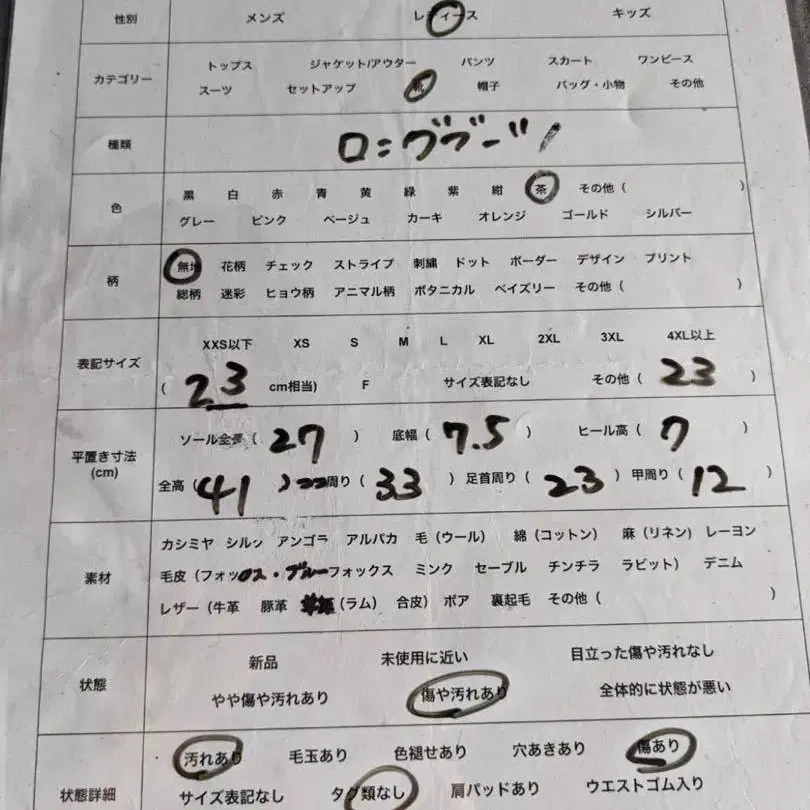 性別 メンズ レディース キッズ
カテゴリー
トップス ジャケット/アウター パンツ スカート ワンピース
スーツ セットアップ 靴 帽子 バッグ・小物 その他
種類 ロングブーツ
色
黒 白 赤 青 黄 緑 紫 紺 茶 その他 ( )
グレー ピンク ベージュ カーキ オレンジ ゴールド シルバー
柄
無地 花柄 チェック ストライプ 刺繍 ドット ボーダー デザイン プリント
総柄 迷彩 ヒョウ柄 アニマル柄 ボタニカル ペイズリー その他 ( )
表記サイズ
XXS以下 XS S M L XL 2XL 3XL 4XL以上
( 23 cm相当) F サイズ表記なし その他 ( 23 )
平置き寸法
(cm)
ソール全長 ( 27 ) 底幅 ( 7.5 ) ヒール高 ( 7 )
全高 ( 41 ) 周り ( 33 ) 足首周り ( 23 ) 甲周り ( 12 )
素材
カシミヤ シルク アンゴラ アルパカ 毛 (ウール) 綿 (コットン) 麻 (リネン) レーヨン
毛皮 (フォックス・ブルーフォックス ミンク セーブル チンチラ ラビット) デニム
レザー (牛革 豚革 (ラム) 合皮) ボア 裏起毛 その他 ( )
状態
新品 未使用に近い 目立った傷や汚れなし
やや傷や汚れあり 傷や汚れあり 全体的に状態が悪い
状態詳細
汚れあり 毛玉あり 色褪せあり 穴あきあり 傷あり
サイズ表記なし タグ類なし 肩パッドあり ウエストゴム入り